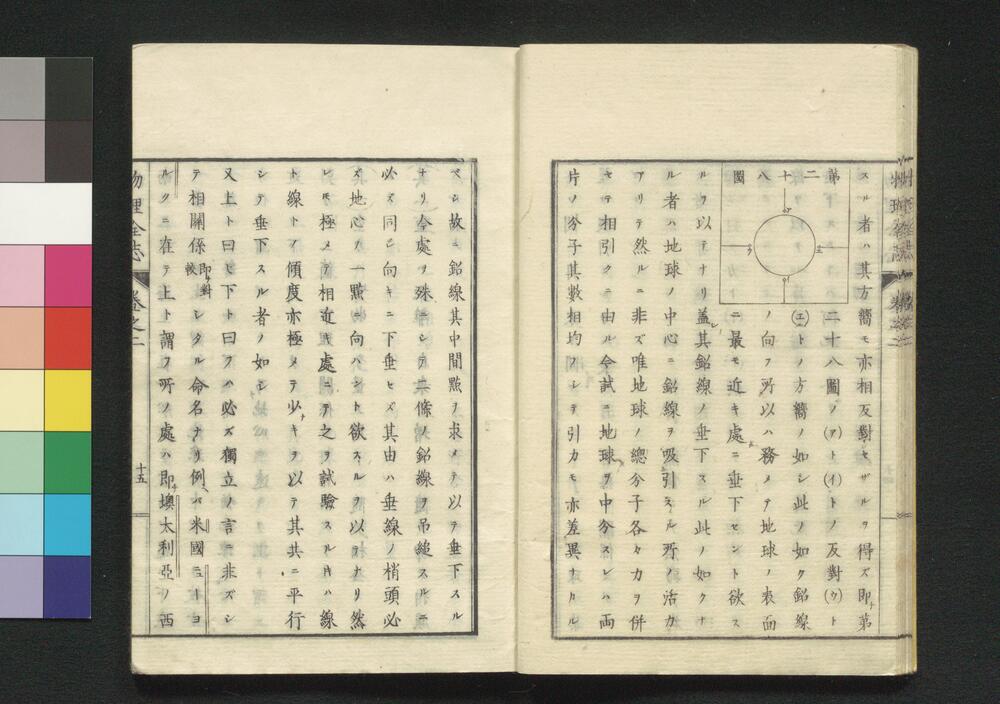 スル者ハ其方嚮モ亦相反對セザルヲ得ズ即チ第
第二十八圖
二十八圖ノ(ア)ト(イ)トノ反對(ウ)ト
(エ)トノ方嚮ノ如シ此ノ如ク鉛線
ノ向フ所以ハ務メテ地球ノ表面
ニ最モ近キ處ニ垂下セント欲ス
ルヲ以テナリ蓋シ其鉛線ノ垂下スル此ノ如クナ
ル者ハ地球ノ中心ニ鉛線ヲ吸引スル所ノ活力
アリテ然ルニ非ズ唯地球ノ總分子各々力ヲ併
セテ相引クニ由ル今試ニ地球ヲ中分スレハ両
片ノ分子其數相均フシテ引力モ亦差異ナカル
ベシ故ニ鉛線其中間點ヲ求メテ以テ垂下スル
ナリ今處ヲ殊ニシテ二條ノ鉛線ヲ吊縋スルニ
必ズ同シ向キニ下垂セズ其由ハ垂線ノ梢頭必
ズ地心ノ一點ニ向ハント欲スルヲ以テナリ然
レモ極メテ相近キ處ニテ之ヲ試驗スル片ハ線
ト線トノ傾度亦極メテ少キヲ以テ其共ニ平行
シテ垂下スル者ノ如シ
又上ト曰ヒ下ト曰フハ必ズ獨立ノ言ニ非ズシ
テ相關係 即チ對較 シタル命名ナリ例ヘバ米國ニーヨ
ルクニ在テ上ト謂フ所ノ處ハ即チ墺太利亞ノ西
物理全志
卷之二
十五